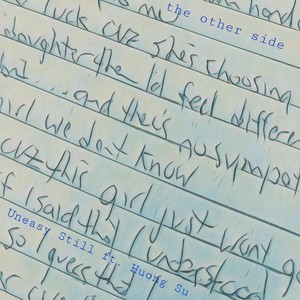 the other side
luck cuz she's choosing
daughter then I'd feel differen
and there's no sympat
girl we don't know
cuz this girl just won't g
if I said that I understood
so I guess that
Uneasy Still ft. Huong Su